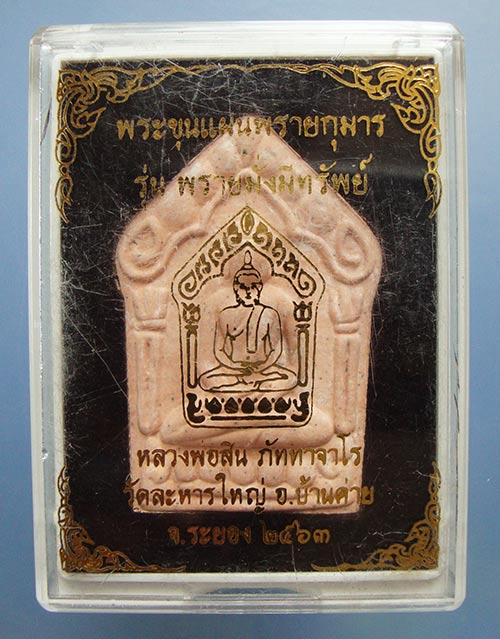 พระขุนแผนพรายกุมาร
รุ่น พรายมั่งมีทรัพย์
หลวงพ่อสิน ภัททาจาโร
วัดละหารใหญ่ อ.บ้านค่าย
จ.ระยอง ๒๕๖๓